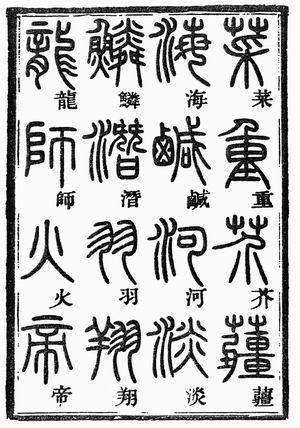 菜菜重重芥芥薑薑
海海鹹鹹河河淡淡
鱗鱗潛潛羽羽翔翔
龍龍師師火火帝帝